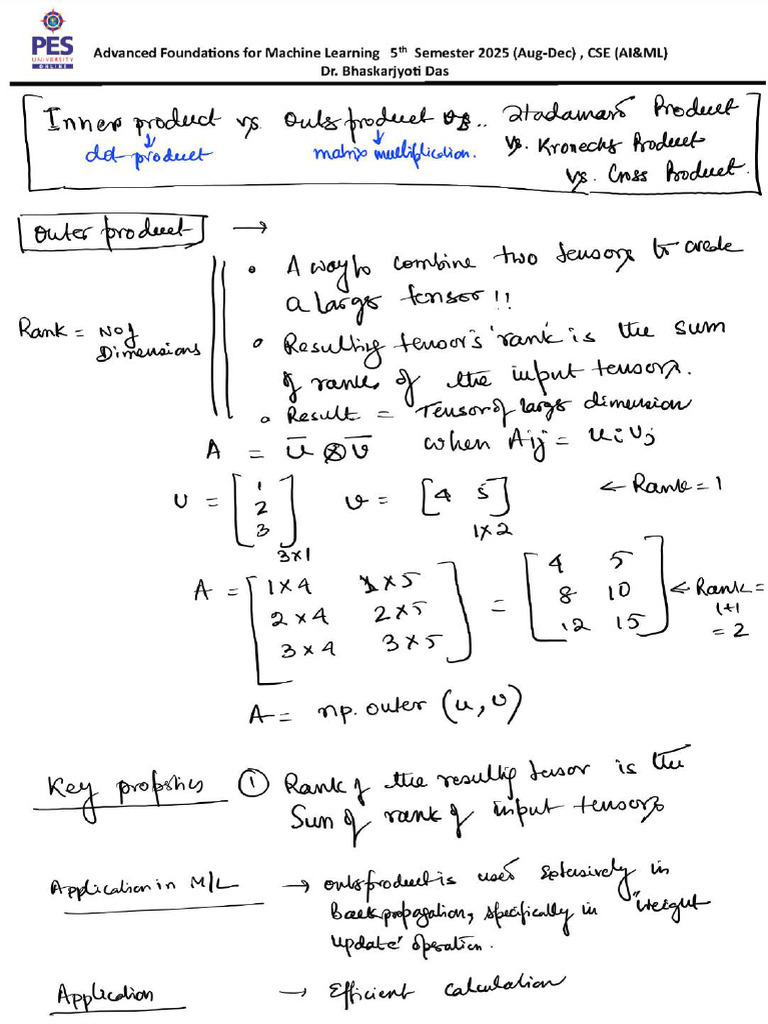 PES
UNIVERSITY
ONLINE
Advanced Foundations for Machine Learning 5th Semester 2025 (Aug-Dec) , CSE (AI&ML)
Dr. Bhaskarjyoti Das
Inner product vs. Outer product vs.. Hadamard Product
dot product
matrix multiplication.
vs. Kronecker Product
vs. Cross Product.
Outer product →
• A way to combine two tensors to create
a larger tensor !!
Rank = No of
Dimensions
• Resulting tensor's 'rank' is the sum
of ranks of the input tensors.
• Result = Tensor of larger dimension
A = u ⊗ v when Aij = uivj
U = [1 2 3] v = [4 5] ← Rank = 1
3x1
1x2
A = [1x4 1x5
2x4 2x5
3x4 3x5] = [4 5
8 10
12 15] ← Rank =
1+1
= 2
A = np.outer (u, v)
Key properties ① Rank of the resulting tensor is the
Sum of rank of input tensors
Application in M/L → outer product is used extensively in
Back propagation, specifically in "weight
update" operation.
Application → Efficient calculation